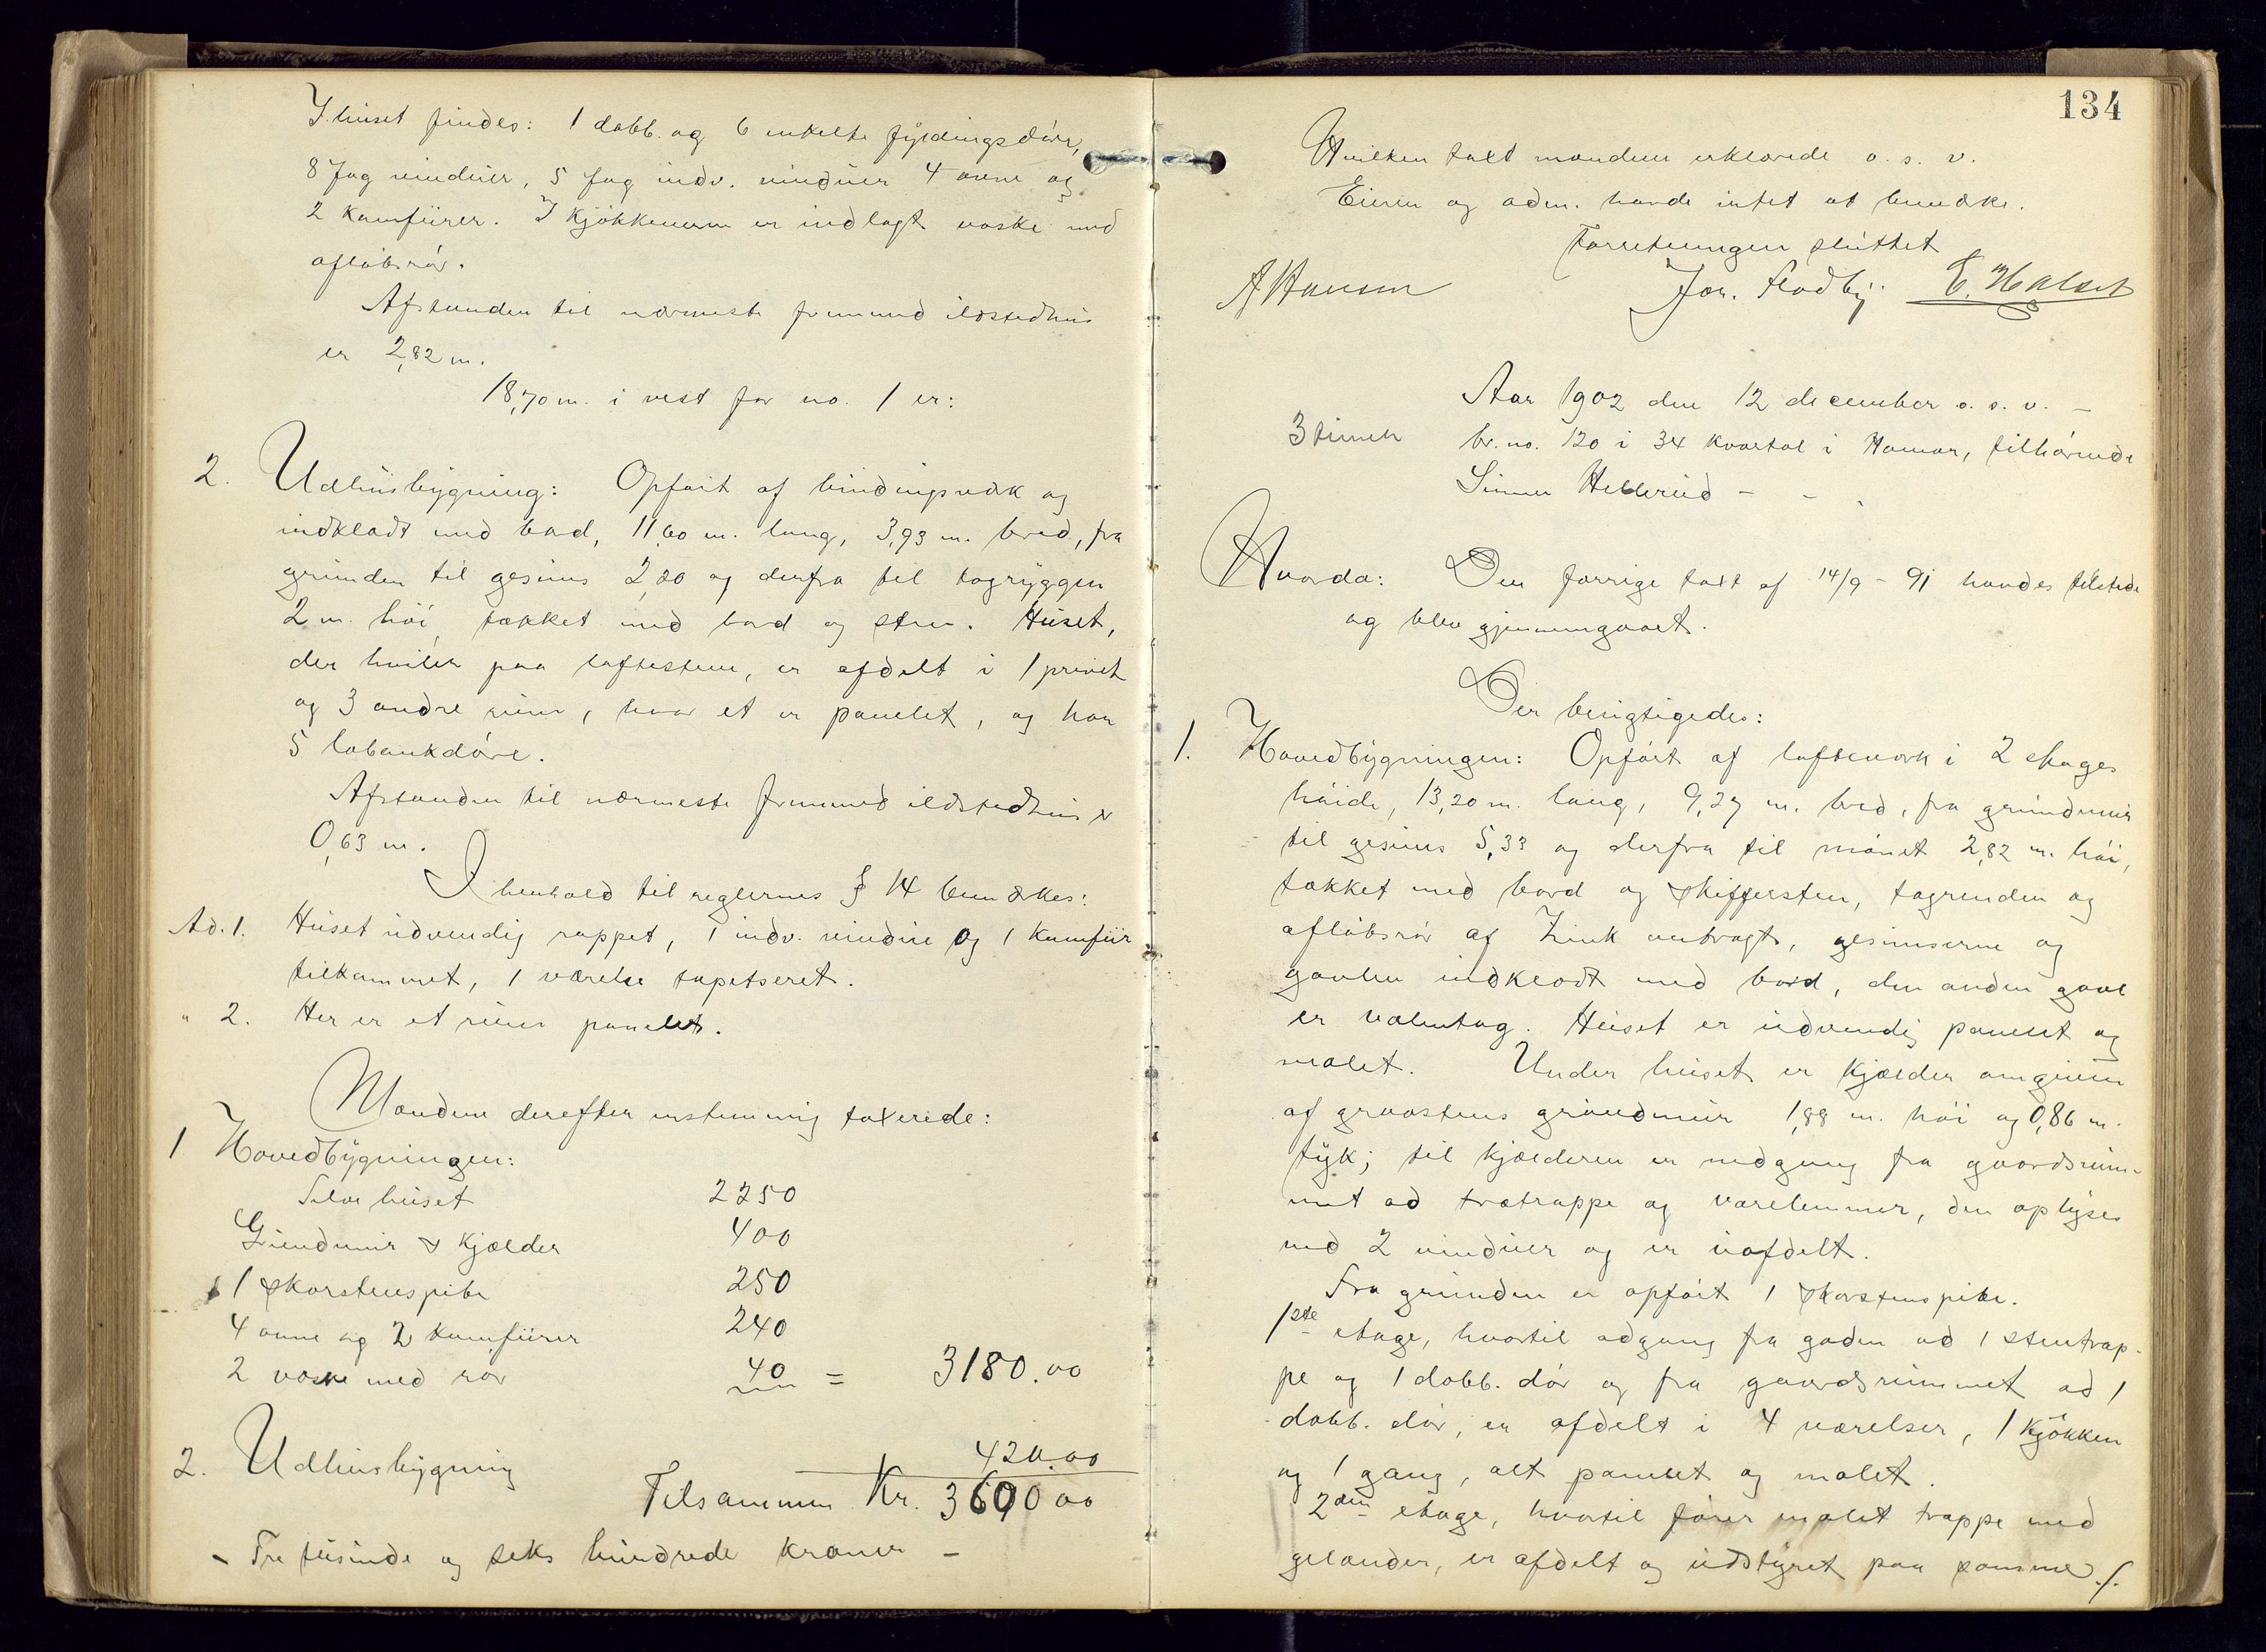 I huset findes: 1 dobb. og 6 enkelte fyldingsdöre,
8 fag vinduer, 5 fag indv. vinduer 4 ovne og
2 komfürer. I kjökkenerne er indlagt vaske med
aflöbsrör.
Afstanden til nærmeste fremmed ildstedhus
er 2,82 m.
18,70 m. i vest for no. 1 er:
2. Udhusbygning: Opfört af bindingsværk og
indklædt med bord, 11,60 m. lang, 3,93 m. bred, fra
grunden til gesims 2,20 og derfra til tagryggen
2 m. höi, tækket med bord og sten. Huset,
der hviler paa loftestene, er afdelt i 1 privet
og 3 andre rum, hvor et er panelet, og har
5 labankdöre.
Afstanden til nærmeste fremmed ildstedhus er
0,63 m.
I henhold til reglernes § 14 bemærkes:
Ad. 1. Huset udvendig rappet, 1 indv. vindue og 1 komfür
tilkommet, 1 værelse tapetseret.
" 2. Her er et rum panelet.
Mændene derefter enstemmig taxerede:
1 Hovedbygningen:
Selve huset 2250
Grundmur & kjælder 400
1 skorstenspibe 250
4 ovne og 2 komfürer 240
2 vaske med rör 40 = 3180.00
2. Udhusbygning 420.00
Tilsammen Kr. 3600 00
- Tre tusinde og seks hundrede kroner -
134
Hvilken taxt mændene erklærede o. s. v.
Eieren og adm. havde intet at bemærke.
Forretningen sluttet
A Hansen Joh. Flodby E. Halset
Aar 1902 den 12 december o. s. v. -
3 timer br. no. 120 i 34 kvartal i Hamar, tilhörende
Simen Hellerud - - -
Hvorda: Den forrige taxt af 14/9 - 91 havdes tilstede
og blev gjennemgaaet.
Der besigtigedes:
1. Hovedbygningen: Opfört af lofteværk i 2 etages
höide, 13,20 m. lang, 9,27 m. bred, fra grundmur
til gesims 5,33 og derfra til mönet 2,82 m. höi,
tækket med bord og skiffersten, tagrender og
aflöbsrör af Zink anbragt, gesimserne og
gavlen indklædt med bord, den anden gavl
er valmtag. Huset er udvendig panelet og
malet. Under huset er kjælder omgiven
af graastens grundmur 1,88 m. höi og 0,86 m.
tyk; til kjælderen er nedgang fra gaardsrum-
met ad trætrappe og varelemmer, den oplyses
ved 2 vinduer og er uafdelt.
Fra grunden er opfört 1 skorstenspibe.
1ste etage, hvortil adgang fra gaden ad 1 stentrap-
pe og 1 dobb. dör og fra gaardsrummet ad 1
dobb. dör, er afdelt i 4 værelser, 1 kjökken
og 1 gang, alt panelet og malet.
2den etage, hvortil förer malet trappe med
gelænder, er afdelt og udstyret paa samme ./.